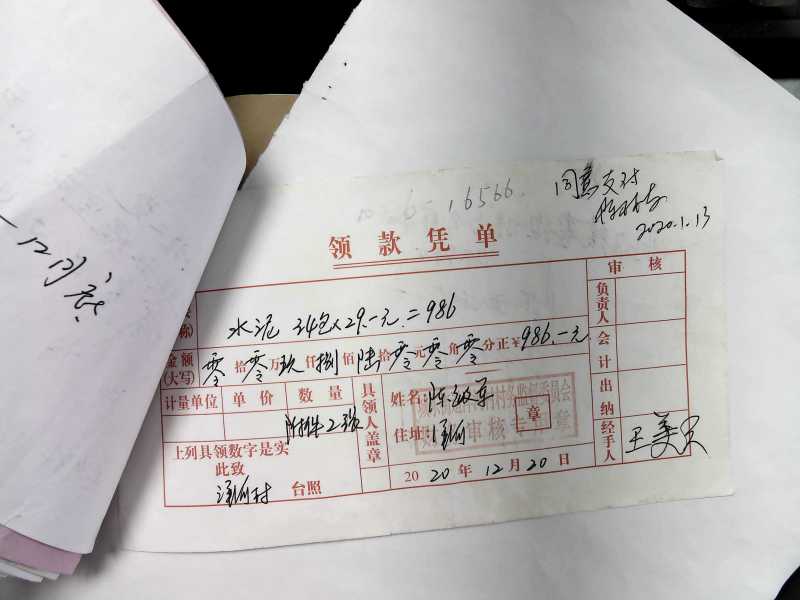 16566.
同意支付
2020.1.13
领款凭单
审核
称)
水泥 34包×29.-元.=986
负责人
金额
(大写)
零拾零万玖仟捌佰陆拾零元零角零分正¥986.-元
会计
计量单位 单价 数量
附排2张
具领人盖章
姓名:陈
住址:
村务监督委员会
审核专用章
章
出纳
上列具领数字是实
此致
村 台照
2020年12月20日
经手人
王美
12月